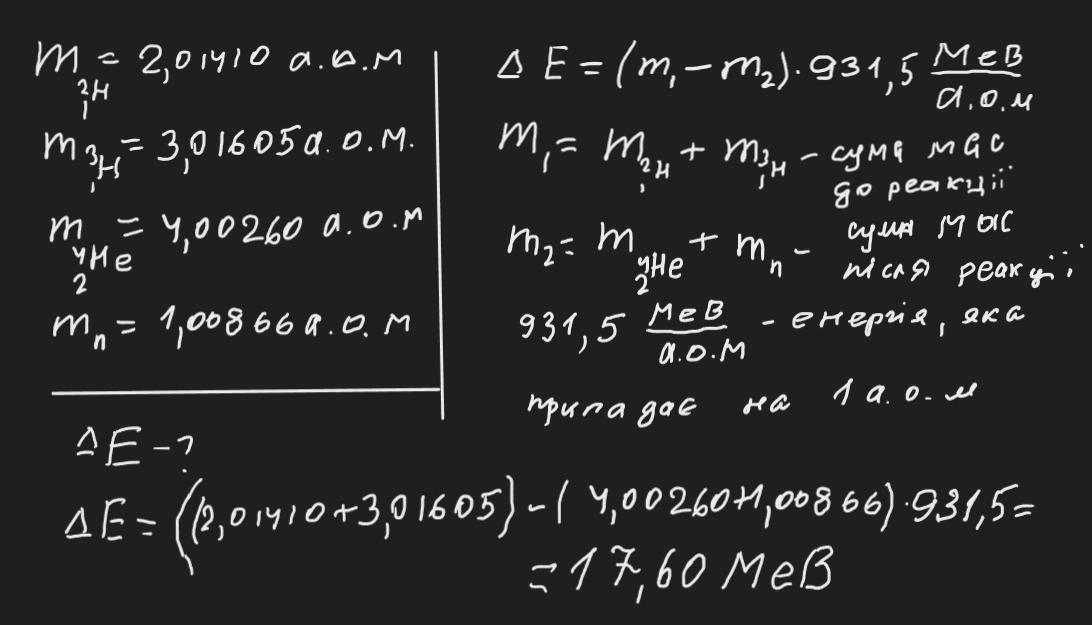 m ²₁H = 2,01410 а.о.м
m ³₁H = 3,01605 а.о.м.
m ⁴₂He = 4,00260 а.о.м
mₙ = 1,00866 а.о.м
ΔE - ?
ΔE = (m₁ - m₂) · 931,5 МеВ/а.о.м
m₁ = m ²₁H + m ³₁H - сума мас
до реакції
m₂ = m ⁴₂He + mₙ - сума мас
після реакції
931,5 МеВ/а.о.м - енергія, яка
припадає на 1 а.о.м
ΔE = ((2,01410+3,01605) - (4,00260+1,00866) · 931,5 =
= 17,60 МеВ